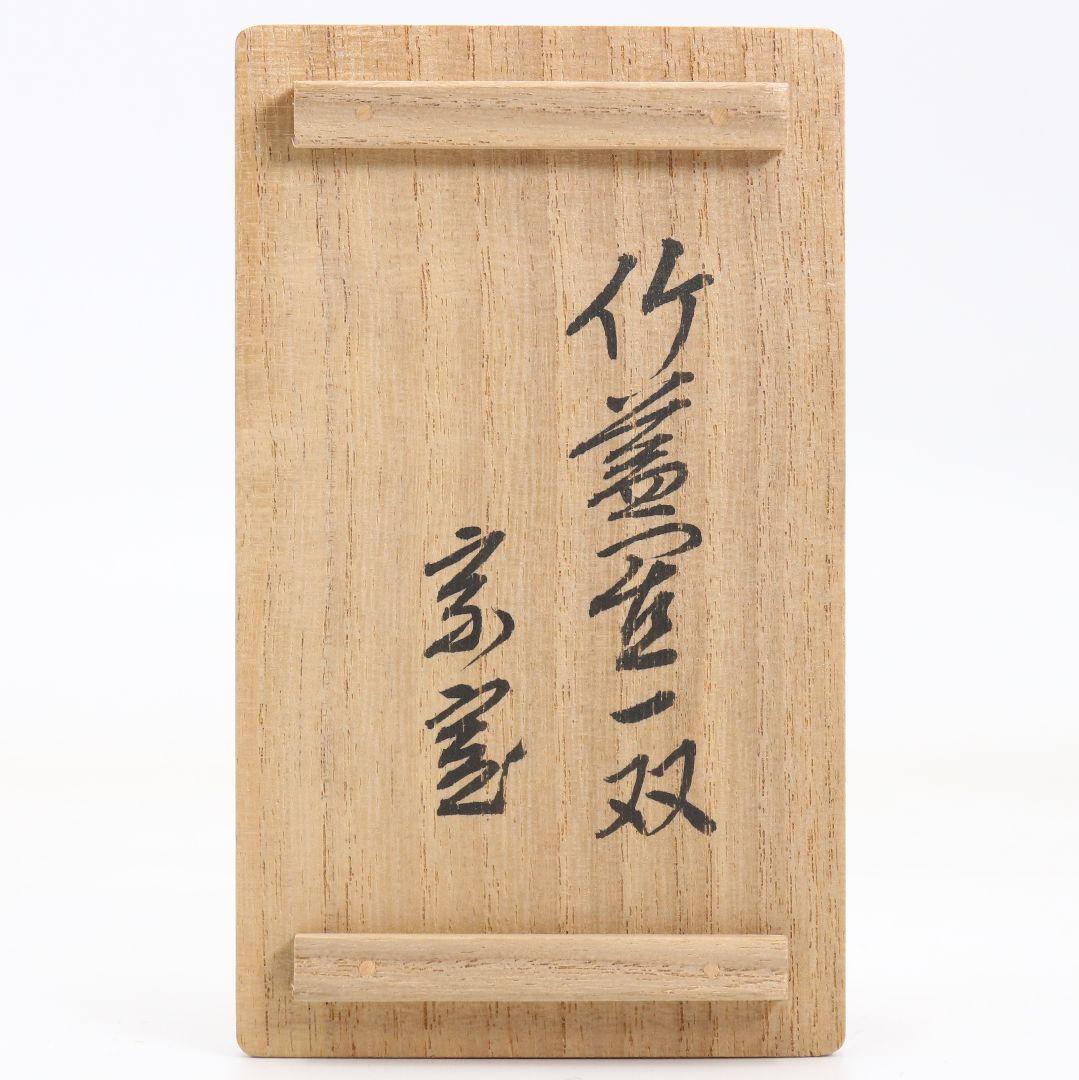 竹蓋置一双
宗